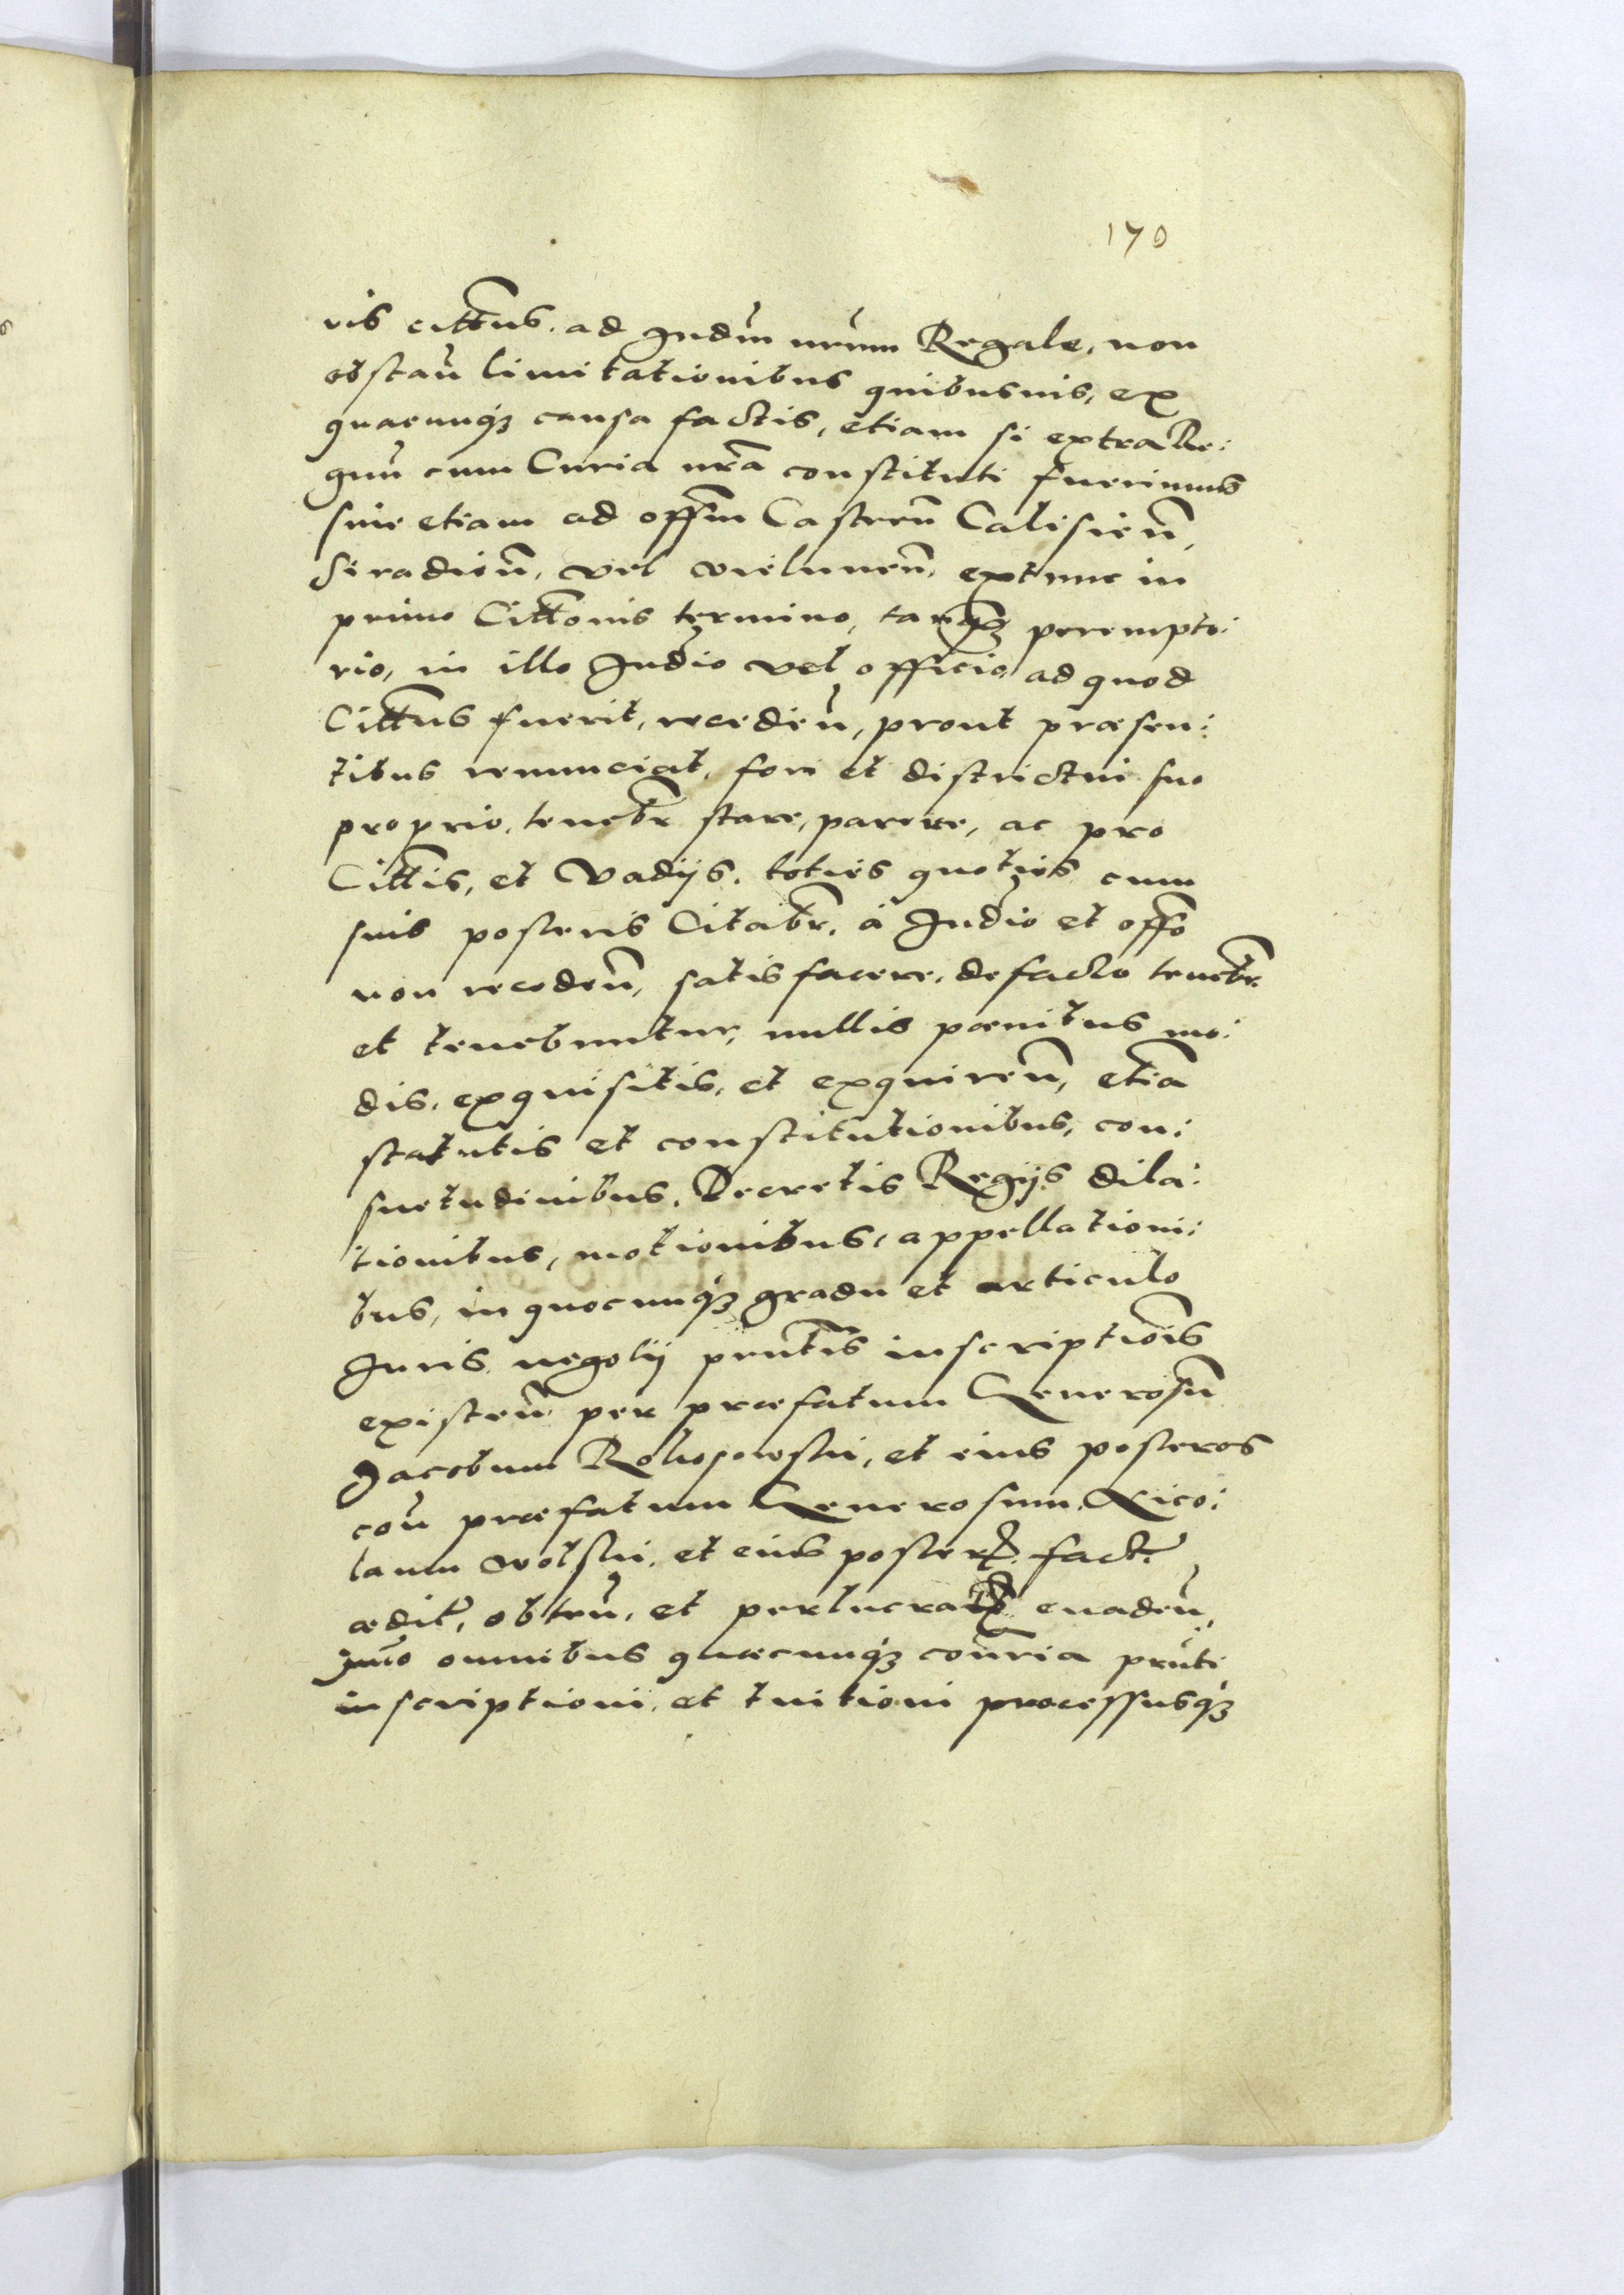 170
vis cittus. ad Iudm nrum Regale, non
obstan limitationibus quibusuis, ex
quacunq3 causa factis, etiam si extra Re:
gnu cum Curia nra constituti fuerimus
siue etiam ad offm Castren Calisien,
Siradien, vel vielunen, extunc in
primo Cittonis termino, tanq3 perempto:
rio, in illo Iudio vel officio ad quod
Cittus fuerit, recedien, prout præsen:
tibus renunciat, fori et districtui suo
proprio, tenebr stare, parere, ac pro
Cittis, et Vadijs. toties quoties cum
suis posteris Citabr, á Iudio et offo
non receden, satisfacere. de facto tenebr
et tenebuntur, nullis pœnitus mo:
dis. exquisitis, et exquiren, etia
statutis et constitutionibus, con:
suetudinibus, Decretis Regijs dila:
tionibus, motionibus, appellationi:
bus, in quocunq3 gradu et articulo
Iuris negotij prntis inscriptiois
existen per præfatum Generosu
Iacobum Rokosowski, et eius posteros
con præfatum Generosum. Nico:
laum wolski. et eius poster. fact
ædit, obten, et perlucra euaden,
imo omnibus quæcunq3 conria prnti
inscriptioni, et tuitioni processusq3